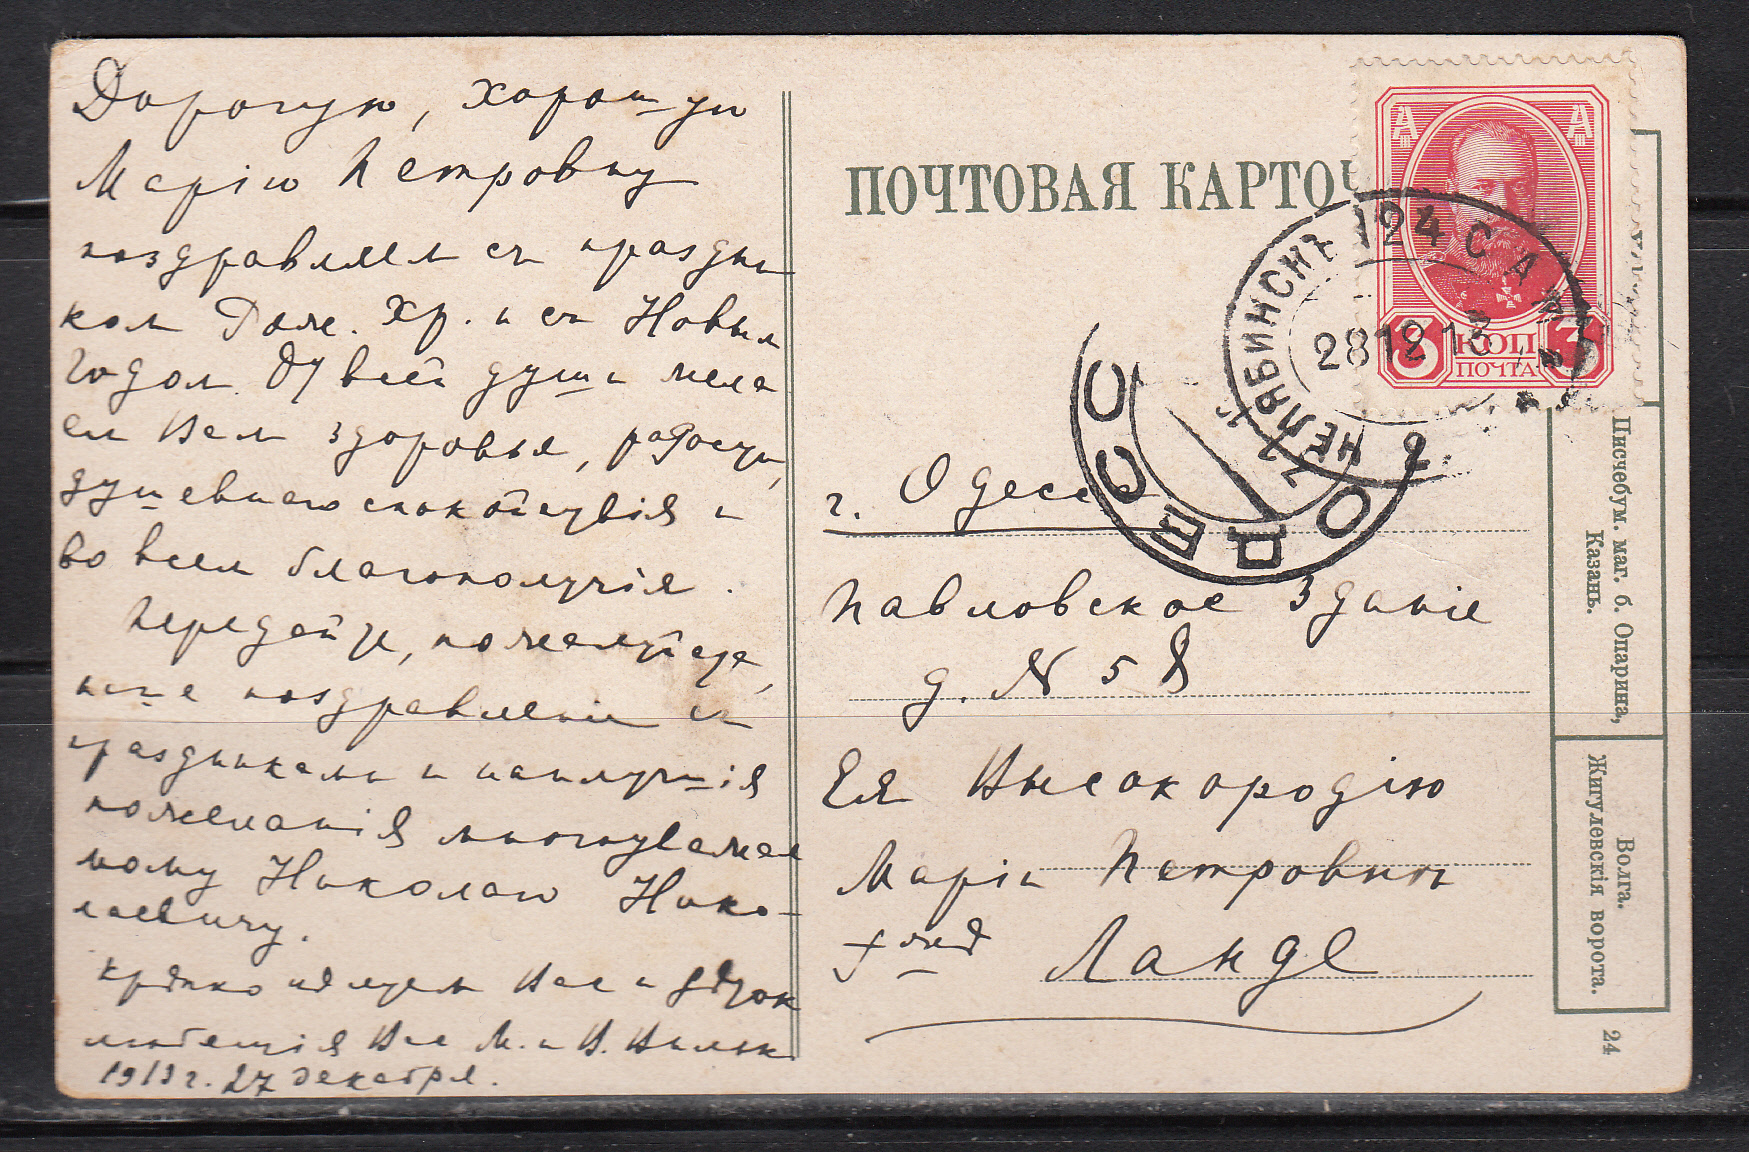 Дорогую, хорошую
Марію Петровну
поздравляем съ праздни
ком Рож. Хр. и съ Новым
Годом. От всей души жела
ем Вам здоровья, радости,
душевнаго спокойствія и
во всем благополучія.
Передайте, пожалуйста,
наше поздравленіе съ
праздниками и наилучшія
пожеланія многоуважае
мому Николаю Нико-
лаевичу.
Крѣпко цѣлуем Вас и дѣток
любящія Вас М. и В.
1913 г. 27 декабря.
ПОЧТОВАЯ КАРТОЧ
А А
3 КОП 3
ПОЧТА
ЧЕЛЯБИНСКЪ 124
28 12 13
ОДЕСС
г. Одесса
Павловское Зданіе
д. N 58
Ея Высокородію
Маріи Петровнѣ
Ланде
Писчебум. маг. б. Опарина,
Казань.
Волга.
Жигулевскія ворота.
24